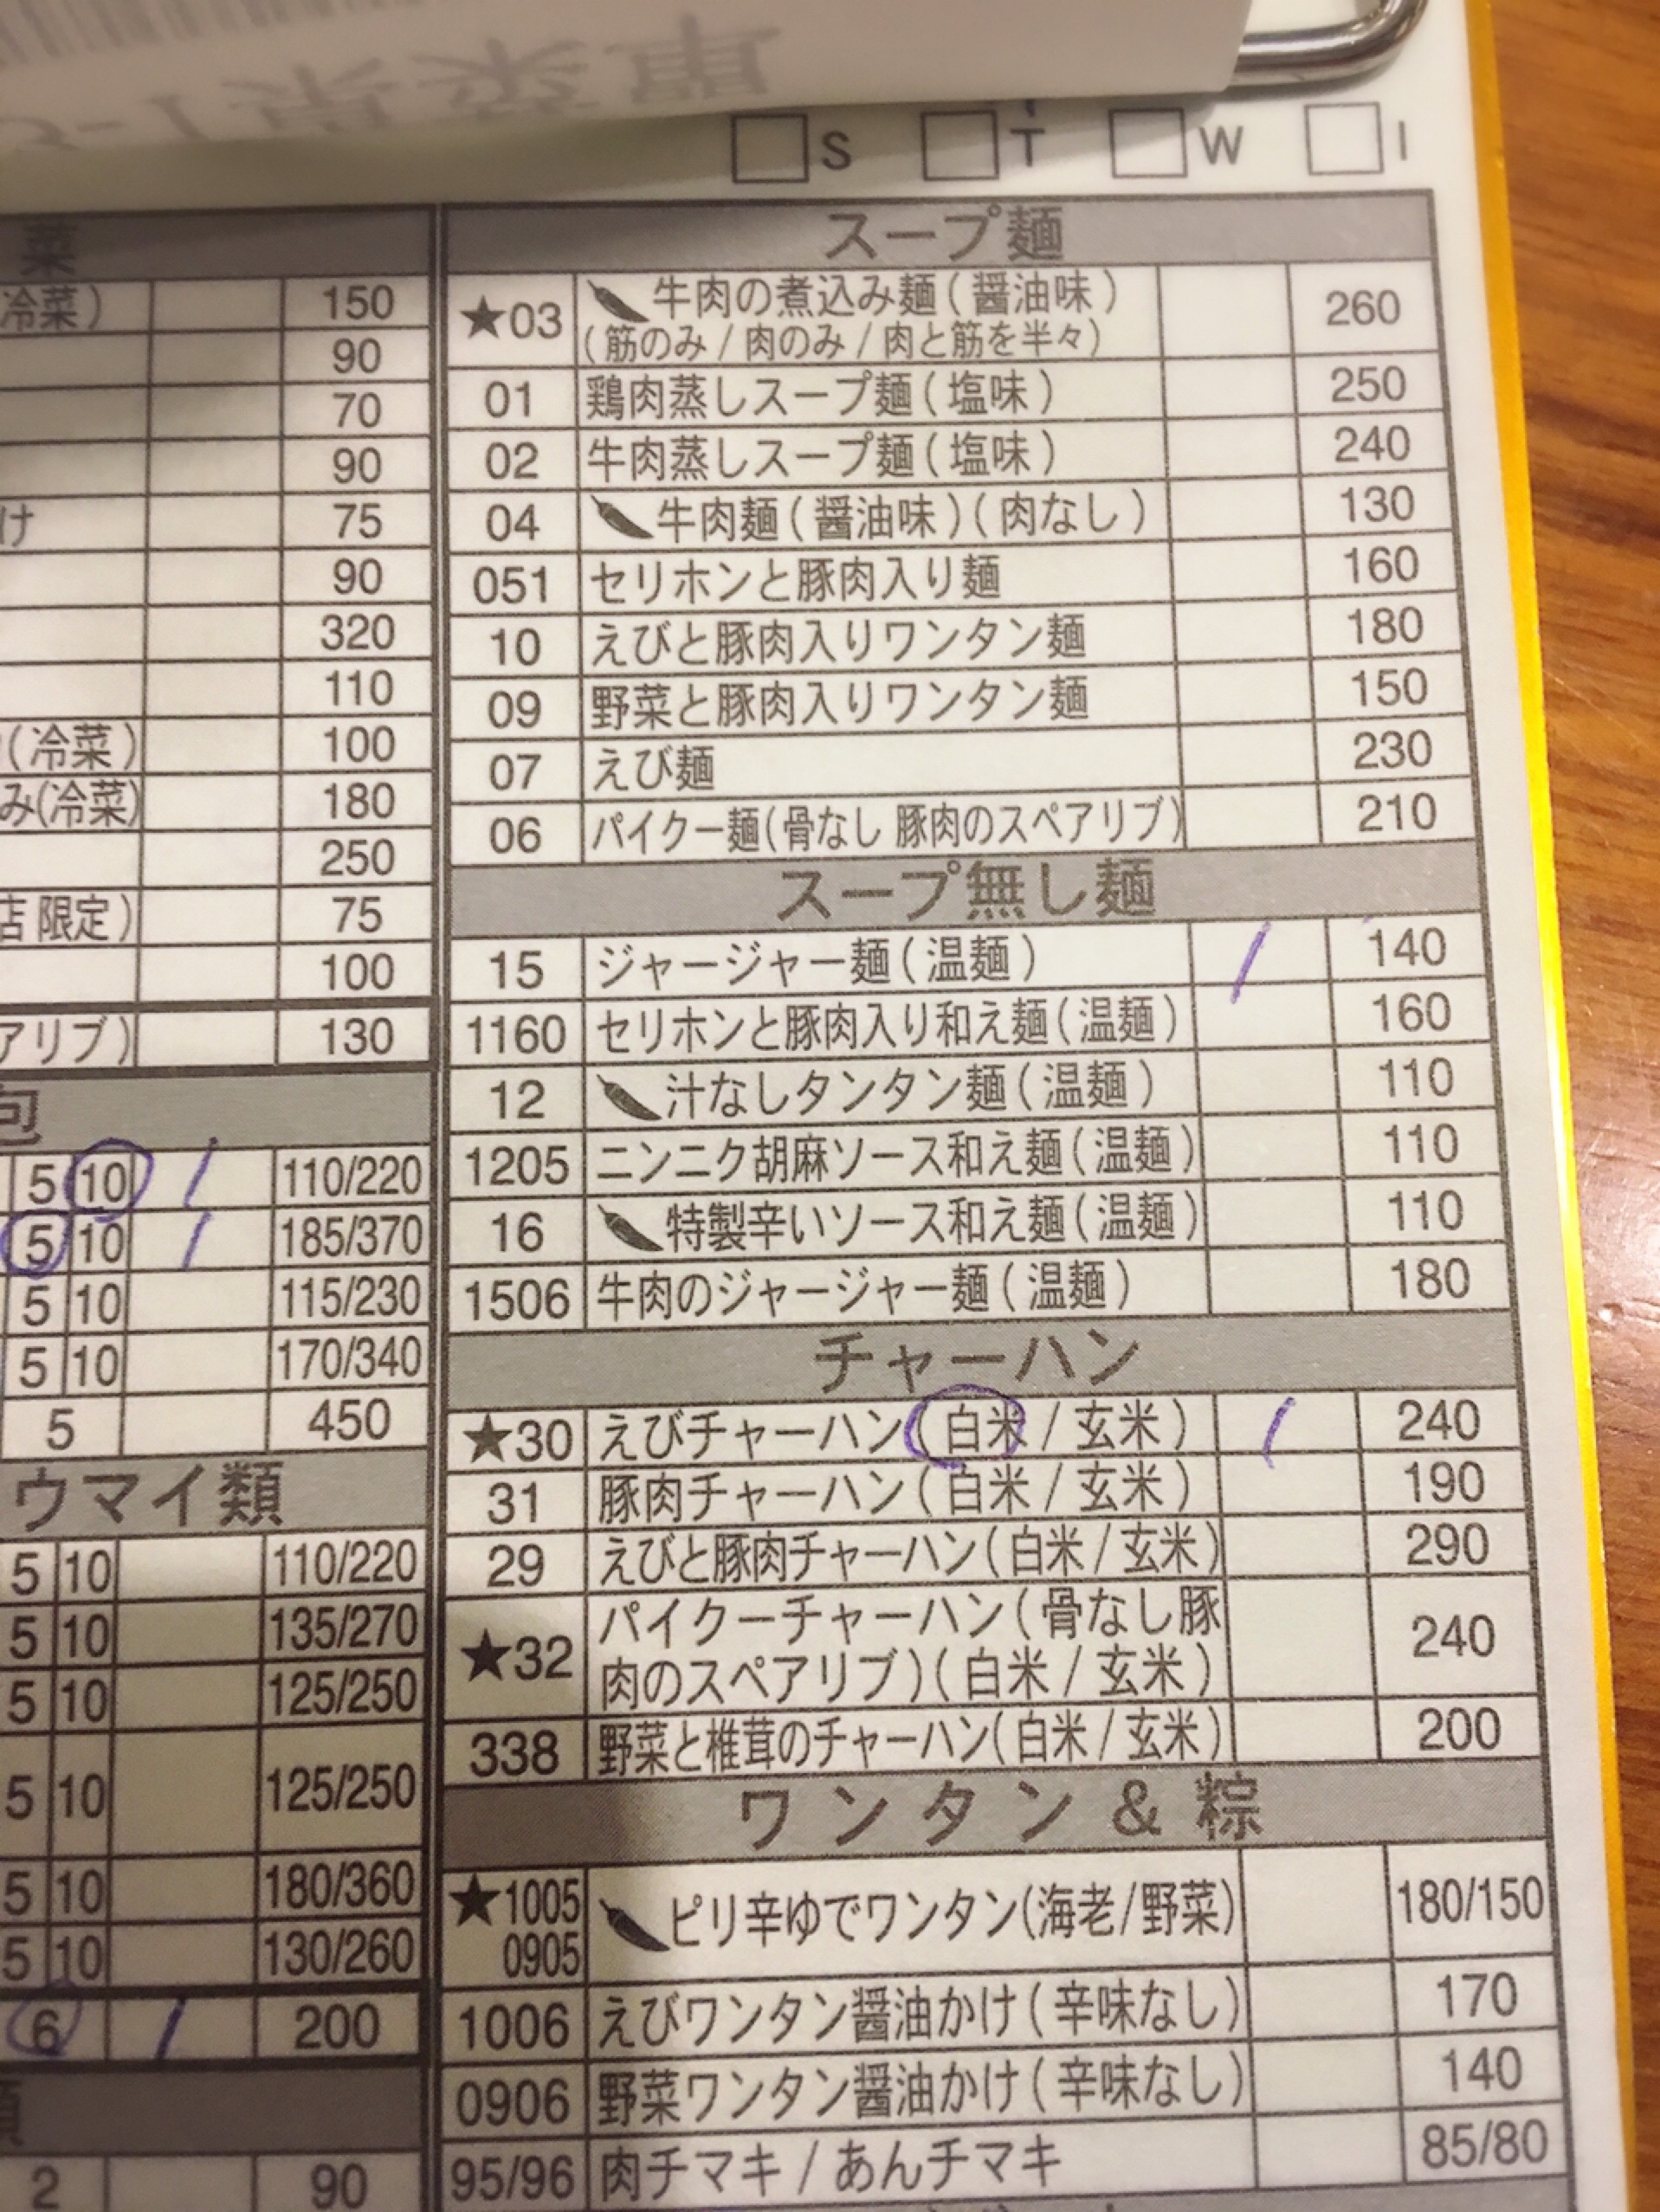 S T W I
菜
冷菜) 150
90
70
90
け 75
90
320
110
(冷菜) 100
み(冷菜) 180
250
店 限定) 75
100
アリブ) 130
包
5 10 / 110/220
5 10 / 185/370
5 10 115/230
5 10 170/340
5 450
ウマイ類
5 10 110/220
5 10 135/270
5 10 125/250
5 10 125/250
5 10 180/360
5 10 130/260
6 / 200
類
2 90
スープ麺
★03 牛肉の煮込み麺(醤油味) 260
(筋のみ/肉のみ/肉と筋を半々)
01 鶏肉蒸しスープ麺(塩味) 250
02 牛肉蒸しスープ麺(塩味) 240
04 牛肉麺(醤油味)(肉なし) 130
051 セリホンと豚肉入り麺 160
10 えびと豚肉入りワンタン麺 180
09 野菜と豚肉入りワンタン麺 150
07 えび麺 230
06 パイクー麺(骨なし 豚肉のスペアリブ) 210
スープ無し麺
15 ジャージャー麺(温麺) / 140
1160 セリホンと豚肉入り和え麺(温麺) 160
12 汁なしタンタン麺(温麺) 110
1205 ニンニク胡麻ソース和え麺(温麺) 110
16 特製辛いソース和え麺(温麺) 110
1506 牛肉のジャージャー麺(温麺) 180
チャーハン
★30 えびチャーハン(白米/玄米) / 240
31 豚肉チャーハン(白米/玄米) 190
29 えびと豚肉チャーハン(白米/玄米) 290
★32 パイクーチャーハン(骨なし豚 240
肉のスペアリブ)(白米/玄米)
338 野菜と椎茸のチャーハン(白米/玄米) 200
ワンタン&粽
★1005 ピリ辛ゆでワンタン(海老/野菜) 180/150
0905
1006 えびワンタン醤油かけ(辛味なし) 170
0906 野菜ワンタン醤油かけ(辛味なし) 140
95/96 肉チマキ/あんチマキ 85/80